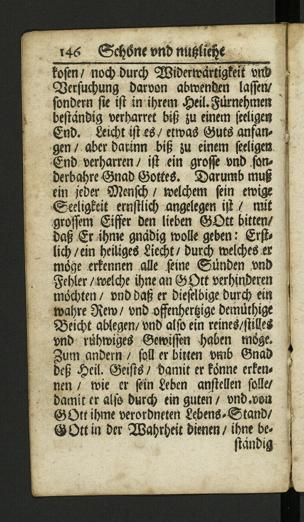 146 Schöne vnd nutzliche
kosen/ noch durch Widerwärtigkeit vnd
Versuchung darvon abwenden lassen/
sondern sie ist in ihrem Heil. Fürnehmen
beständig verharret biß zu einem seeligen
End. Leicht ist es/ etwas Guts anfan-
gen/ aber darinn biß zu einem seeligen
End verharren/ ist ein grosse vnd son-
derbahre Gnad Gottes. Darumb muß
ein jeder Mensch/ welchem sein ewige
Seeligkeit ernstlich angelegen ist/ mit
grossem Eiffer den lieben GOtt bitten/
daß Er ihme gnädig wolle geben: Erst-
lich/ ein heiliges Liecht/ durch welches er
möge erkennen alle seine Sünden vnd
Fehler/ welche ihne an GOtt verhinderen
möchten/ vnd daß er dieselbige durch ein
wahre Rew/ vnd offenhertzige demüthige
Beicht ablegen/ vnd also ein reines/ stilles
vnd rühwiges Gewissen haben möge.
Zum andern/ soll er bitten vmb Gnad
deß Heil. Geists/ damit er könne erken-
nen/ wie er sein Leben anstellen solle/
damit er also durch ein guten/ vnd von
GOtt ihme verordneten Lebens-Stand/
GOtt in der Wahrheit dienen/ ihne be-
ständig